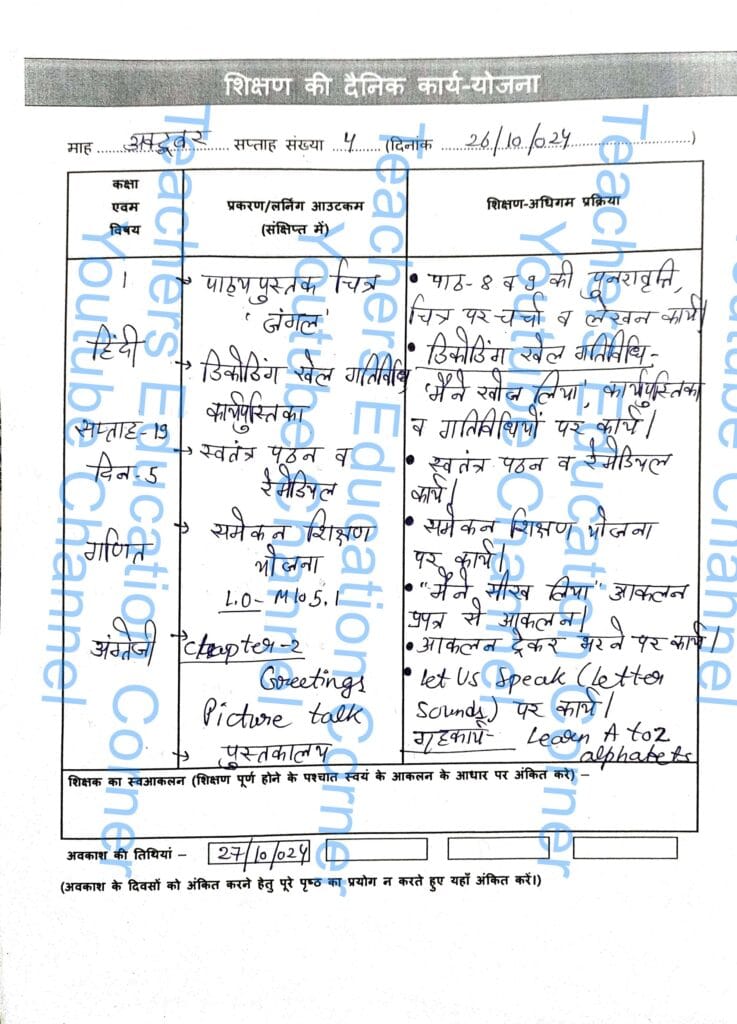 शिक्षण की दैनिक कार्य-योजना
माह अक्टूबर सप्ताह संख्या 4 (दिनांक 26/10/024)
कक्षा
एवम
विषय
प्रकरण/लर्निंग आउटकम
(संक्षिप्त में)
शिक्षण-अधिगम प्रक्रिया
1
हिंदी
सप्ताह-19
दिन-5
→ पाठ्यपुस्तक चित्र
'जंगल'
→ डिकोडिंग खेल गतिविधि
कार्यपुस्तिका
→ स्वतंत्र पठन व
रेमेडियल
• पाठ-8 व 9 की पुनरावृत्ति,
चित्र पर चर्चा व लेखन कार्य।
• डिकोडिंग खेल गतिविधि-
'मैंने खोज लिया', कार्यपुस्तिका
व गतिविधियों पर कार्य।
• स्वतंत्र पठन व रेमेडियल
कार्य।
गणित
→ समेकन शिक्षण
योजना
L.O- M105.1
• समेकन शिक्षण योजना
पर कार्य।
• "मैंने सीख लिया" आकलन
प्रपत्र से आकलन।
• आकलन ट्रेकर भरने पर कार्य।
अंग्रेजी
→ Chapter-2
Greetings
Picture talk
→ पुस्तकालय
• Let Us Speak (letter
sounds) पर कार्य।
गृहकार्य- Learn A to Z
alphabets
शिक्षक का स्वआकलन (शिक्षण पूर्ण होने के पश्चात स्वयं के आकलन के आधार पर अंकित करे) –
अवकाश की तिथियां – 27/10/024
(अवकाश के दिवसों को अंकित करने हेतु पूरे पृष्ठ का प्रयोग न करते हुए यहाँ अंकित करें।)
Teachers Education Corner
Youtube Channel
Teachers Education Corner
Youtube Channel
Teachers Education Corner
Youtube Channel